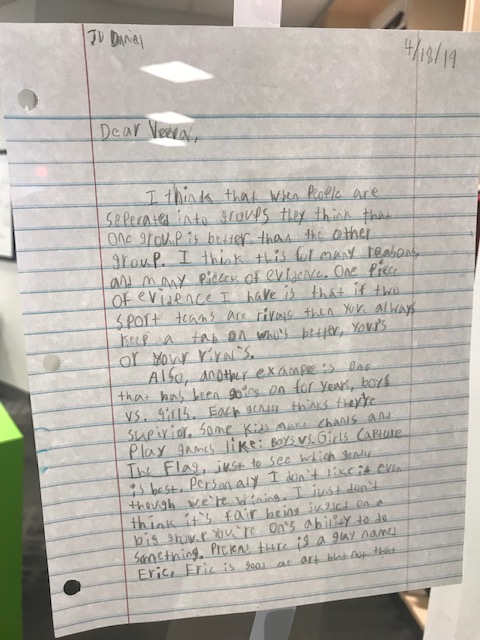 JD Daniel
4/18/19
Dear Veera,
I think that when people are
seperates into groups they think that
one group is better than the other
group. I think this for many reasons,
and many pieces of evidence. One piece
of evidence I have is that if two
sport teams are rivels then you always
keep a tab on who's better, your's
or your rival's.
Also, another example is one
that has been going on for years, boys
vs. girls. Each gender thinks they're
supirior. Some kids make chants and
Play games like: Boys vs. Girls Capture
The Flag, just to see which gender
is best. Personaly I don't like it even
though we're wining. I just don't
think it's fair being judged on a
big group you're on's ability to do
something. Pretend there is a guy named
Eric, Eric is good at art but not that